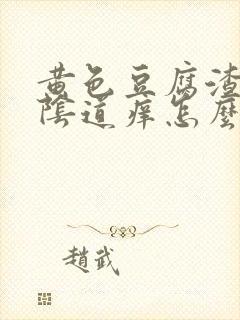 黄色豆腐渣
陰道痒怎麼
趙武